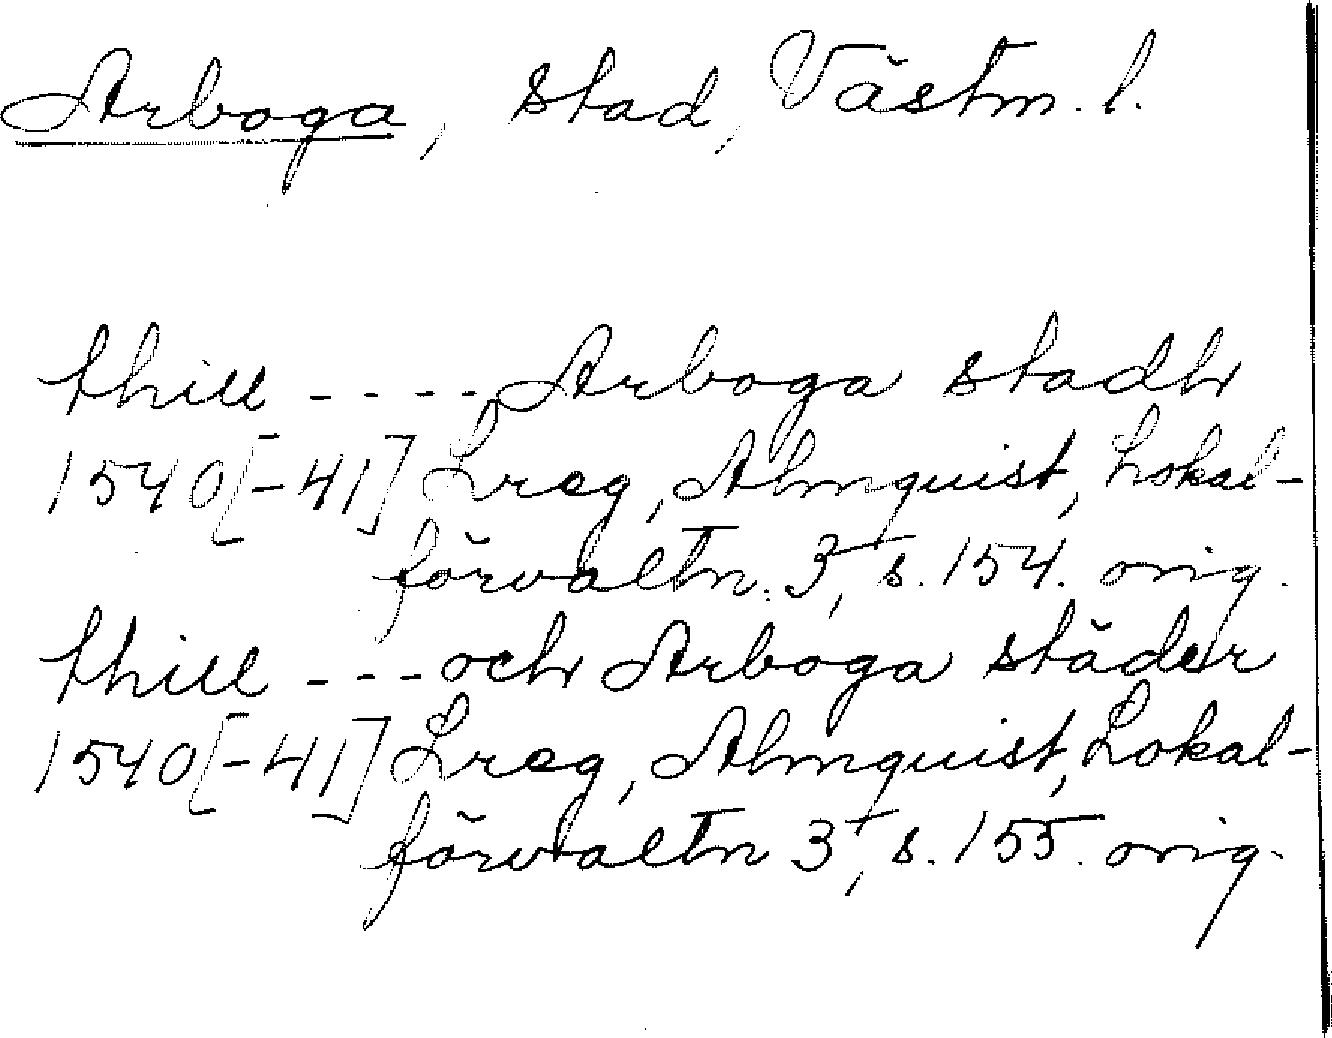 Arboga, stad, Västm. l.
thill - - - - Arboga stadh
1540[-41] Lreg, Almquist, Lokal-
förvaltn. 3, s. 154. orig.
thill - - - och Arboga städer
1540[-41] Lreg, Almquist, Lokal-
förvaltn 3, s. 155. orig.